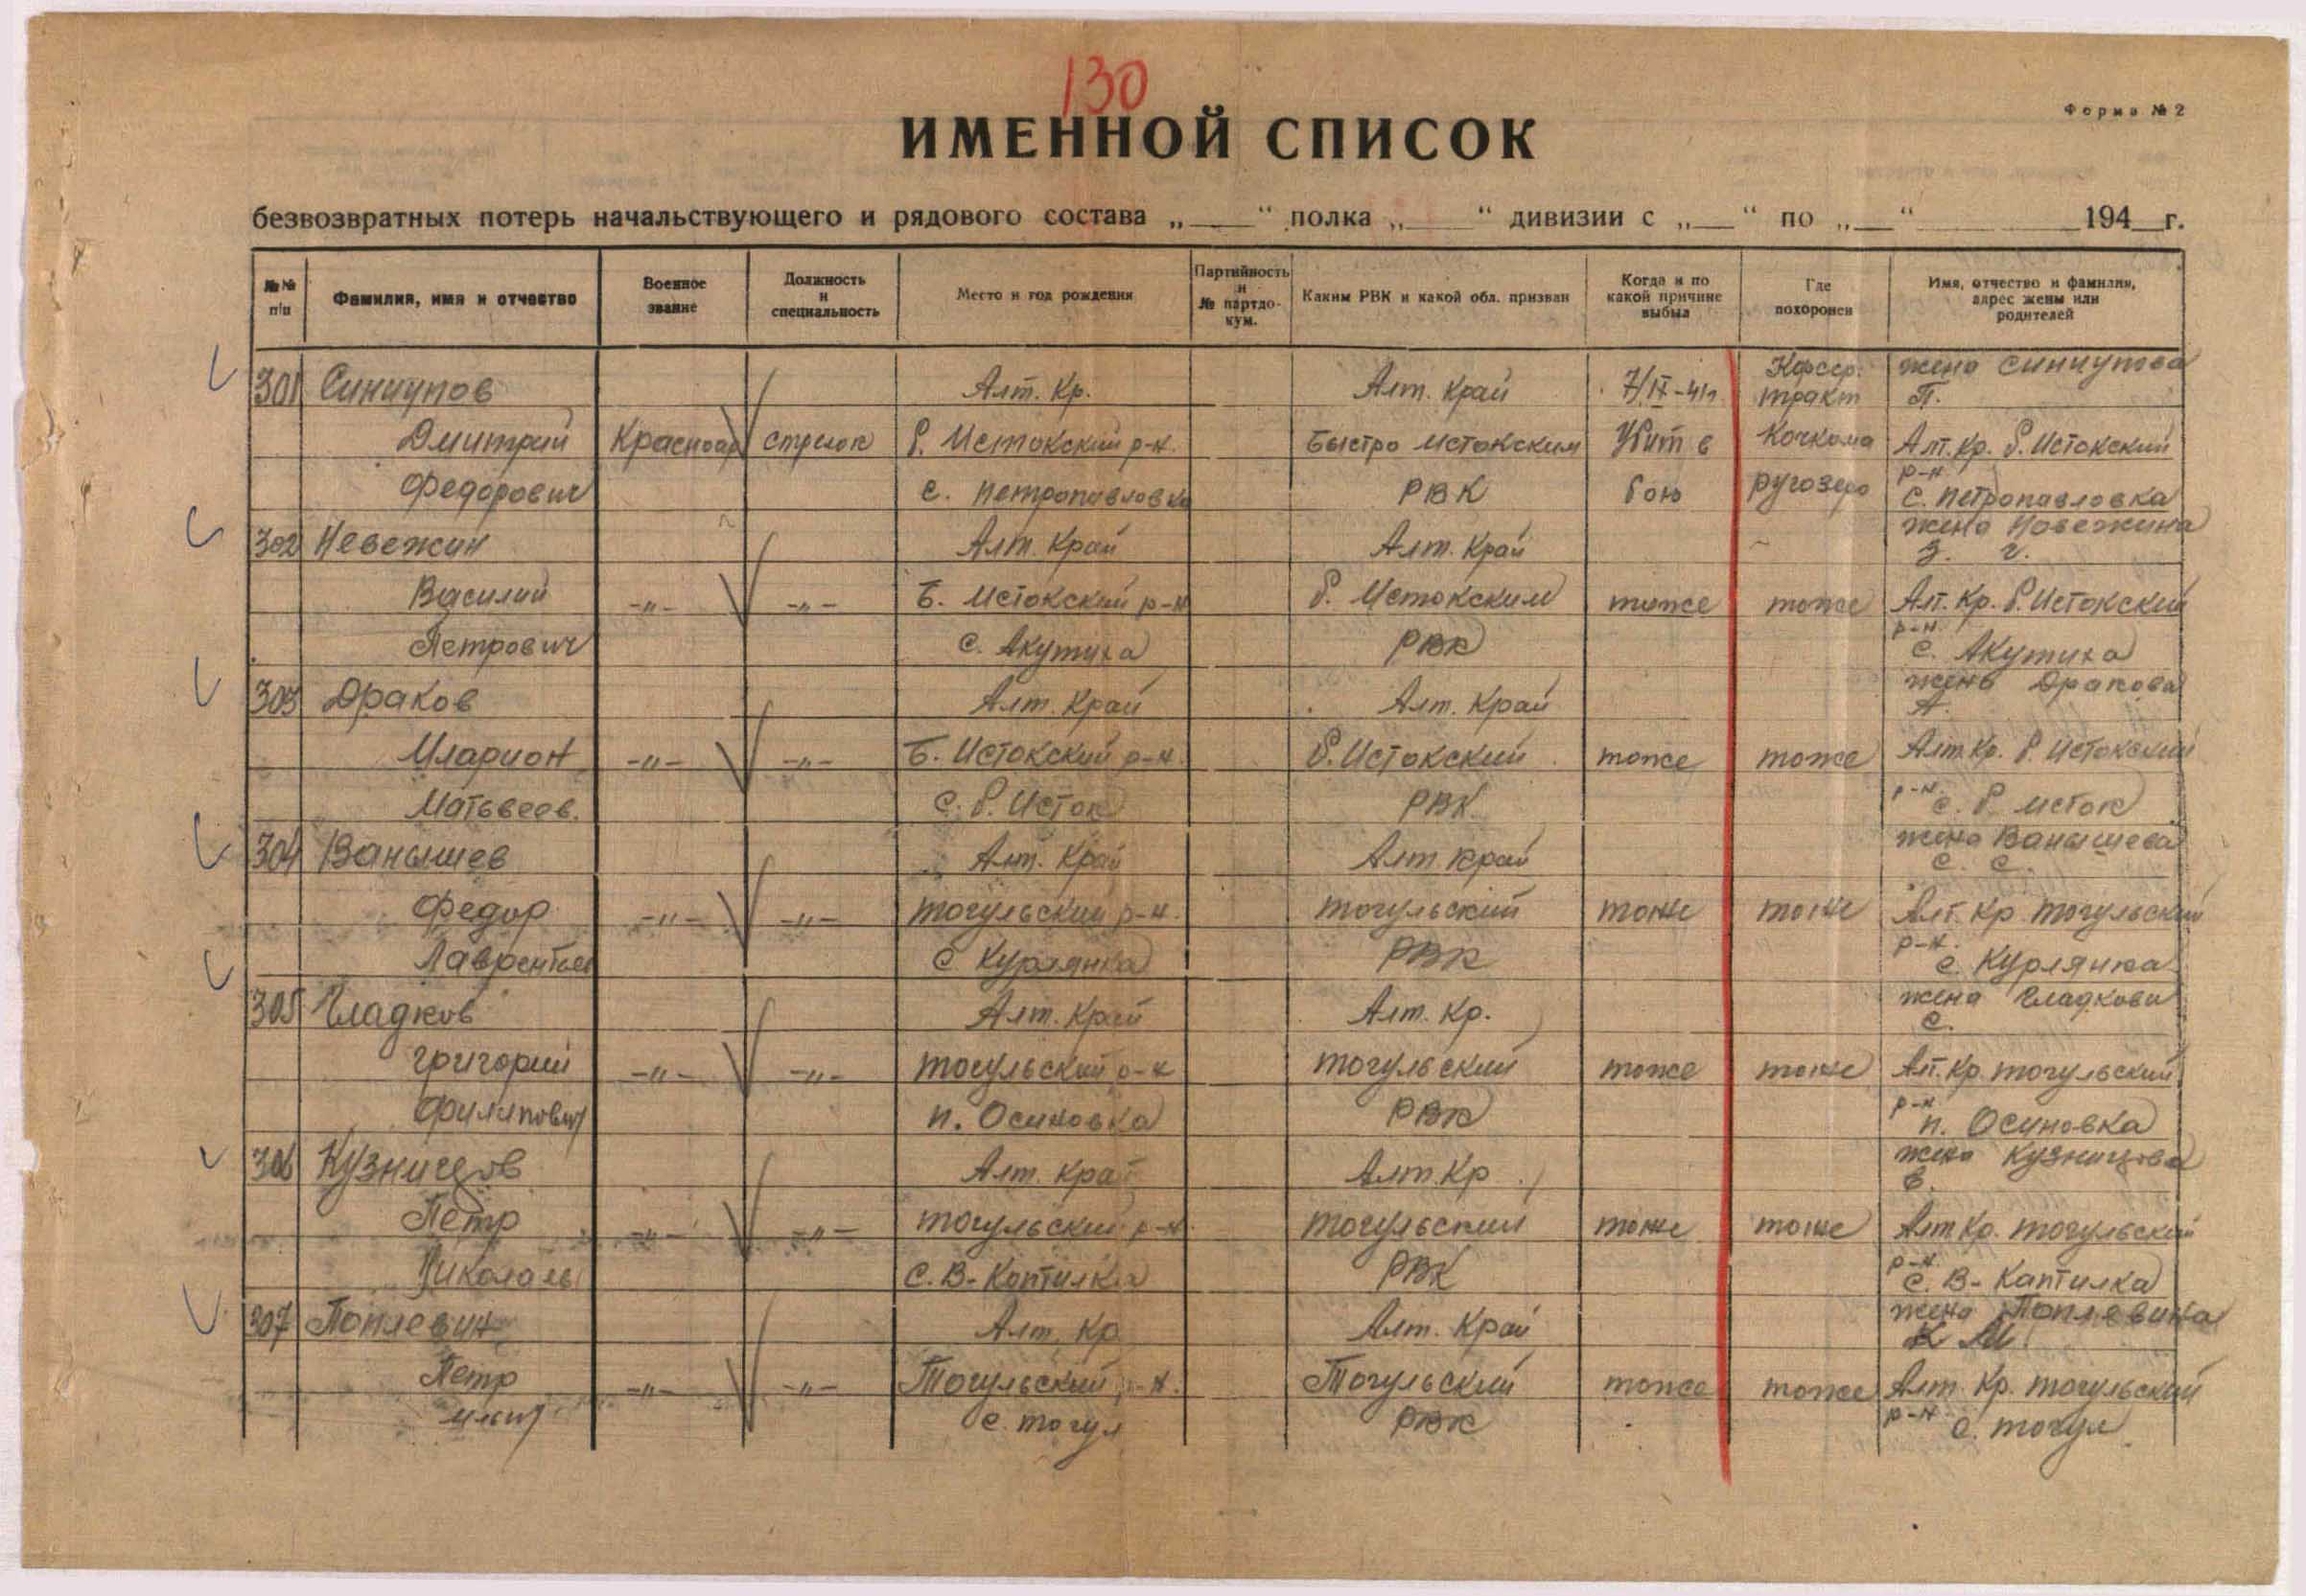 130
Форма № 2
ИМЕННОЙ СПИСОК
безвозвратных потерь начальствующего и рядового состава „___“ полка „___“ дивизии с „___“ по „___“ ______ 194__г.
№№ п/п | Фамилия, имя и отчество | Военное звание | Должность и специальность | Место и год рождения | Партийность и № партдокум. | Каким РВК и какой обл. призван | Когда и по какой причине выбыл | Где похоронен | Имя, отчество и фамилия, адрес жены или родителей
301 Синчупов Алт. Кр. Алт. Край 7/IX-41г. тракт жена Синчупова П.
Дмитрий Красноар стрелок Б. Истокский р-н. Быстро Истокским Убит в Кочкома Алт. Кр. Б. Истокский р-н
Федорович с. Петропавловка РВК бою Ругозеро с. Петропавловка
302 Невежин Алт. Край Алт. Край жена Новежина З. г.
Василий -"- -"- Б. Истокский р-н Б. Истокским тоже тоже Алт. Кр. Б. Истокский р-н.
Петрович с. Акутиха РВК с. Акутиха
303 Драков Алт. Край Алт. Край жена Дракова А.
Иларион -"- -"- Б. Истокский р-н. Б. Истокский тоже тоже Алт. Кр. Б. Истокский р-н.
Матьвеев. с. Б. Исток РВК с. Б. Исток
304 Ванышев Алт. Край Алт Край жена Ванышева С. С.
Федор -"- -"- Тогульский р-н. Тогульский тоже тоже Алт. Кр Тогульский р-н.
Лаврентьев с Курлянка РВК с. Курлянка
305 Гладков Алт. Край Алт. Кр. жена Гладкова С.
Григорий -"- -"- Тогульский р-н Тогульский тоже тоже Алт. Кр. Тогульский р-н
Филипович п. Осиновка РВК п. Осиновка
306 Кузничов Алт. Край Алт. Кр жена Кузничова Е.
Петр -"- -"- Тогульский р-н. Тогульский тоже тоже Алт Кр. Тогульский р-н.
Николаев с. В-Коптилка РВК с. В-Каптилка
307 Поплевин Алт. Кр Алт. Край жена Поплевина К М.
Петр -"- -"- Тогульский р-н. Тогульский тоже тоже Алт. Кр. Тогульский р-н
Ильич с. Тогул РВК с. Тогул